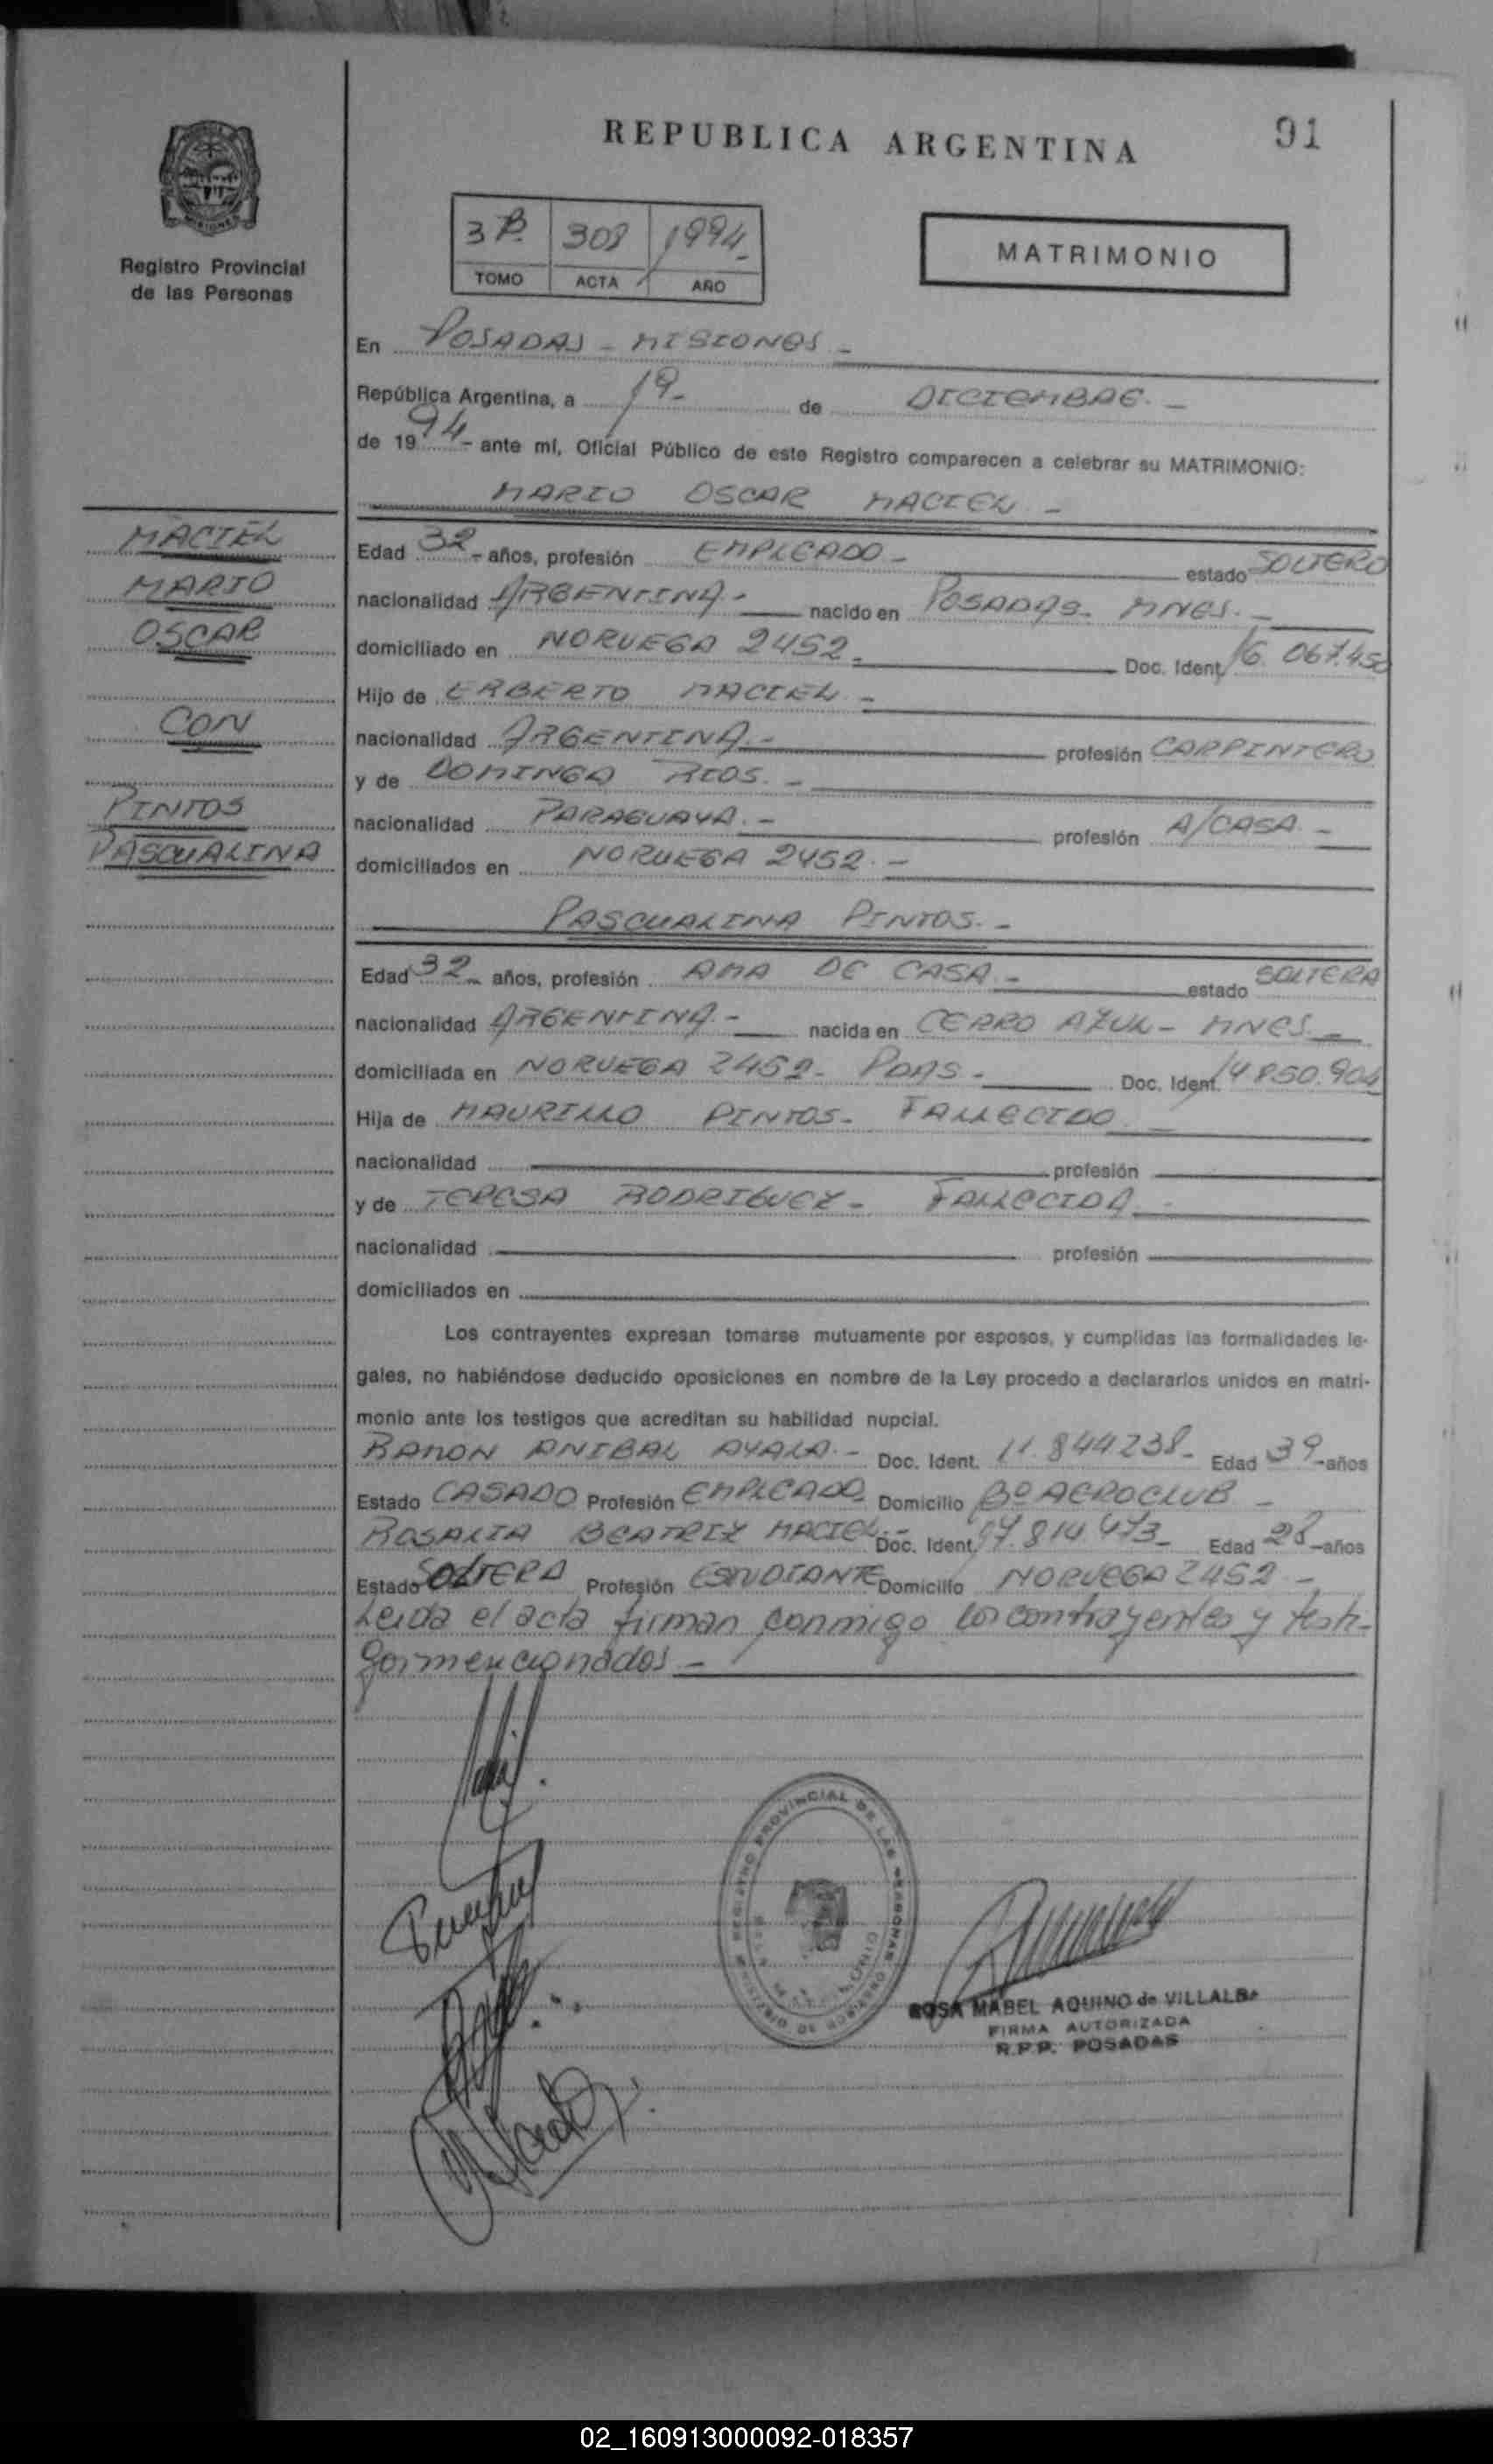 REPUBLICA ARGENTINA
91
Registro Provincial
de las Personas
3 B. 308 1994
TOMO ACTA AÑO
MATRIMONIO
En POSADAS - MISIONES -
República Argentina, a 19- de DICIEMBRE. -
de 1994- ante mí, Oficial Público de este Registro comparecen a celebrar su MATRIMONIO:
MARIO OSCAR MACIEL -
MACIEL
MARIO
OSCAR
CON
PINTOS
PASCUALINA
Edad 32- años, profesión EMPLEADO - estado SOLTERO
nacionalidad ARGENTINA - nacido en POSADAS - MNES. -
domiciliado en NORUEGA 2452 - Doc. Ident. 16.067.450
Hijo de ERBERTO MACIEL -
nacionalidad ARGENTINA. - profesión CARPINTERO
y de DOMINGA RIOS. -
nacionalidad PARAGUAYA. - profesión A/CASA. -
domiciliados en NORUEGA 2452. -
PASCUALINA PINTOS. -
Edad 32- años, profesión AMA DE CASA. - estado SOLTERA
nacionalidad ARGENTINA - nacida en CERRO AZUL - MNES. -
domiciliada en NORUEGA 2452 - PDAS. - Doc. Ident. 14.850.904
Hija de MAURILLO PINTOS - FALLECIDO -
nacionalidad profesión
y de TERESA RODRIGUEZ - FALLECIDA. -
nacionalidad profesión
domiciliados en
Los contrayentes expresan tomarse mutuamente por esposos, y cumplidas las formalidades le-
gales, no habiéndose deducido oposiciones en nombre de la Ley procedo a declararlos unidos en matri-
monio ante los testigos que acreditan su habilidad nupcial.
RAMON ANIBAL AYALA. - Doc. Ident. 11.844238- Edad 39-años
Estado CASADO Profesión EMPLEADO Domicilio Bº AEROCLUB -
ROSALIA BEATRIZ MACIEL. - Doc. Ident. 17.814.473- Edad 28-años
Estado SOLTERA Profesión ESTUDIANTE Domicilio NORUEGA 2452 -
Leida el acta firman conmigo los contrayentes y testi-
gos mencionados -
REGISTRO PROVINCIAL DE LAS PERSONAS
ROSA MABEL AQUINO de VILLALBA
FIRMA AUTORIZADA
R.P.P. POSADAS
02_160913000092-018357